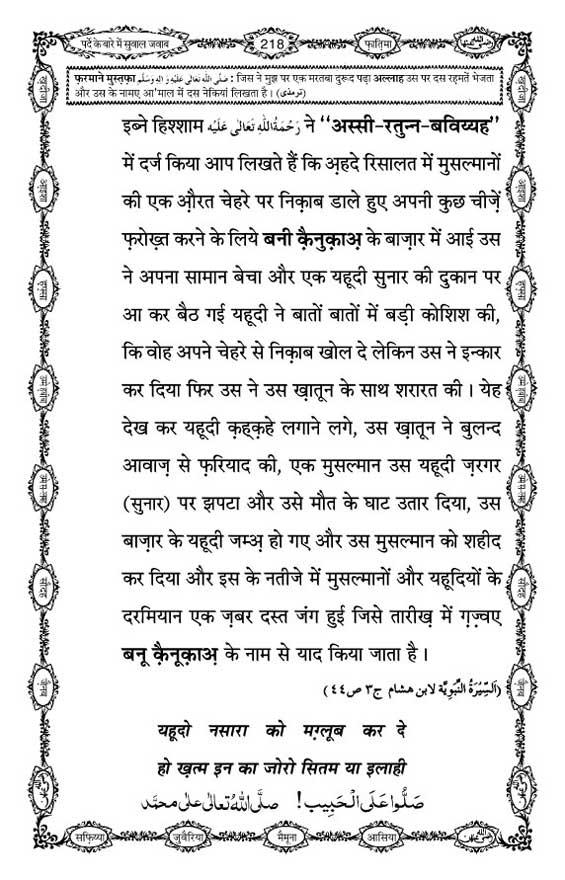 पर्दे के बारे में सुवाल जवाब
218
फ़ातिमा
फ़रमाने मुस्तफ़ा صَلَّى اللهُ تَعَالٰى عَلَيْهِ وَاٰلِهٖ وَسَلَّم : जिस ने मुझ पर एक मरतबा दुरूद पढ़ा अल्लाह उस पर दस रहमतें भेजता
और उस के नामए आ'माल में दस नेकियां लिखता है। (ترمذی)
इब्ने हिश्शाम رَحْمَةُ اللهِ تَعَالٰى عَلَيْه ने “अस्सी-रतुन्न-बविय्यह”
में दर्ज किया आप लिखते हैं कि अ़हदे रिसालत में मुसल्मानों
की एक औ़रत चेहरे पर निक़ाब डाले हुए अपनी कुछ चीज़ें
फ़रोख़्त करने के लिये बनी क़ैनुक़ाअ़ के बाज़ार में आई उस
ने अपना सामान बेचा और एक यहूदी सुनार की दुकान पर
आ कर बैठ गई यहूदी ने बातों बातों में बड़ी कोशिश की,
कि वोह अपने चेहरे से निक़ाब खोल दे लेकिन उस ने इन्कार
कर दिया फिर उस ने उस ख़ातून के साथ शरारत की। येह
देख कर यहूदी क़ह्क़हे लगाने लगे, उस ख़ातून ने बुलन्द
आवाज़ से फ़रियाद की, एक मुसल्मान उस यहूदी ज़रगर
(सुनार) पर झपटा और उसे मौत के घाट उतार दिया, उस
बाज़ार के यहूदी जम्अ़ हो गए और उस मुसल्मान को शहीद
कर दिया और इस के नतीजे में मुसल्मानों और यहूदियों के
दरमियान एक ज़बर दस्त जंग हुई जिसे तारीख़ में ग़ज़्वए
बनू क़ैनूक़ाअ़ के नाम से याद किया जाता है।
(اَلسِّيْرَةُ النَّبَوِيَّة لابن هشام ج۳ ص٤٤)
यहूदो नसारा को मग़्लूब कर दे
हो ख़त्म इन का जोरो सितम या इलाही
صَلُّوا عَلَى الْحَبِيب! صلَّى اللهُ تعالٰى على محمَّد
सफ़िय्या
जुवैरिया
मैमूना
आसिया